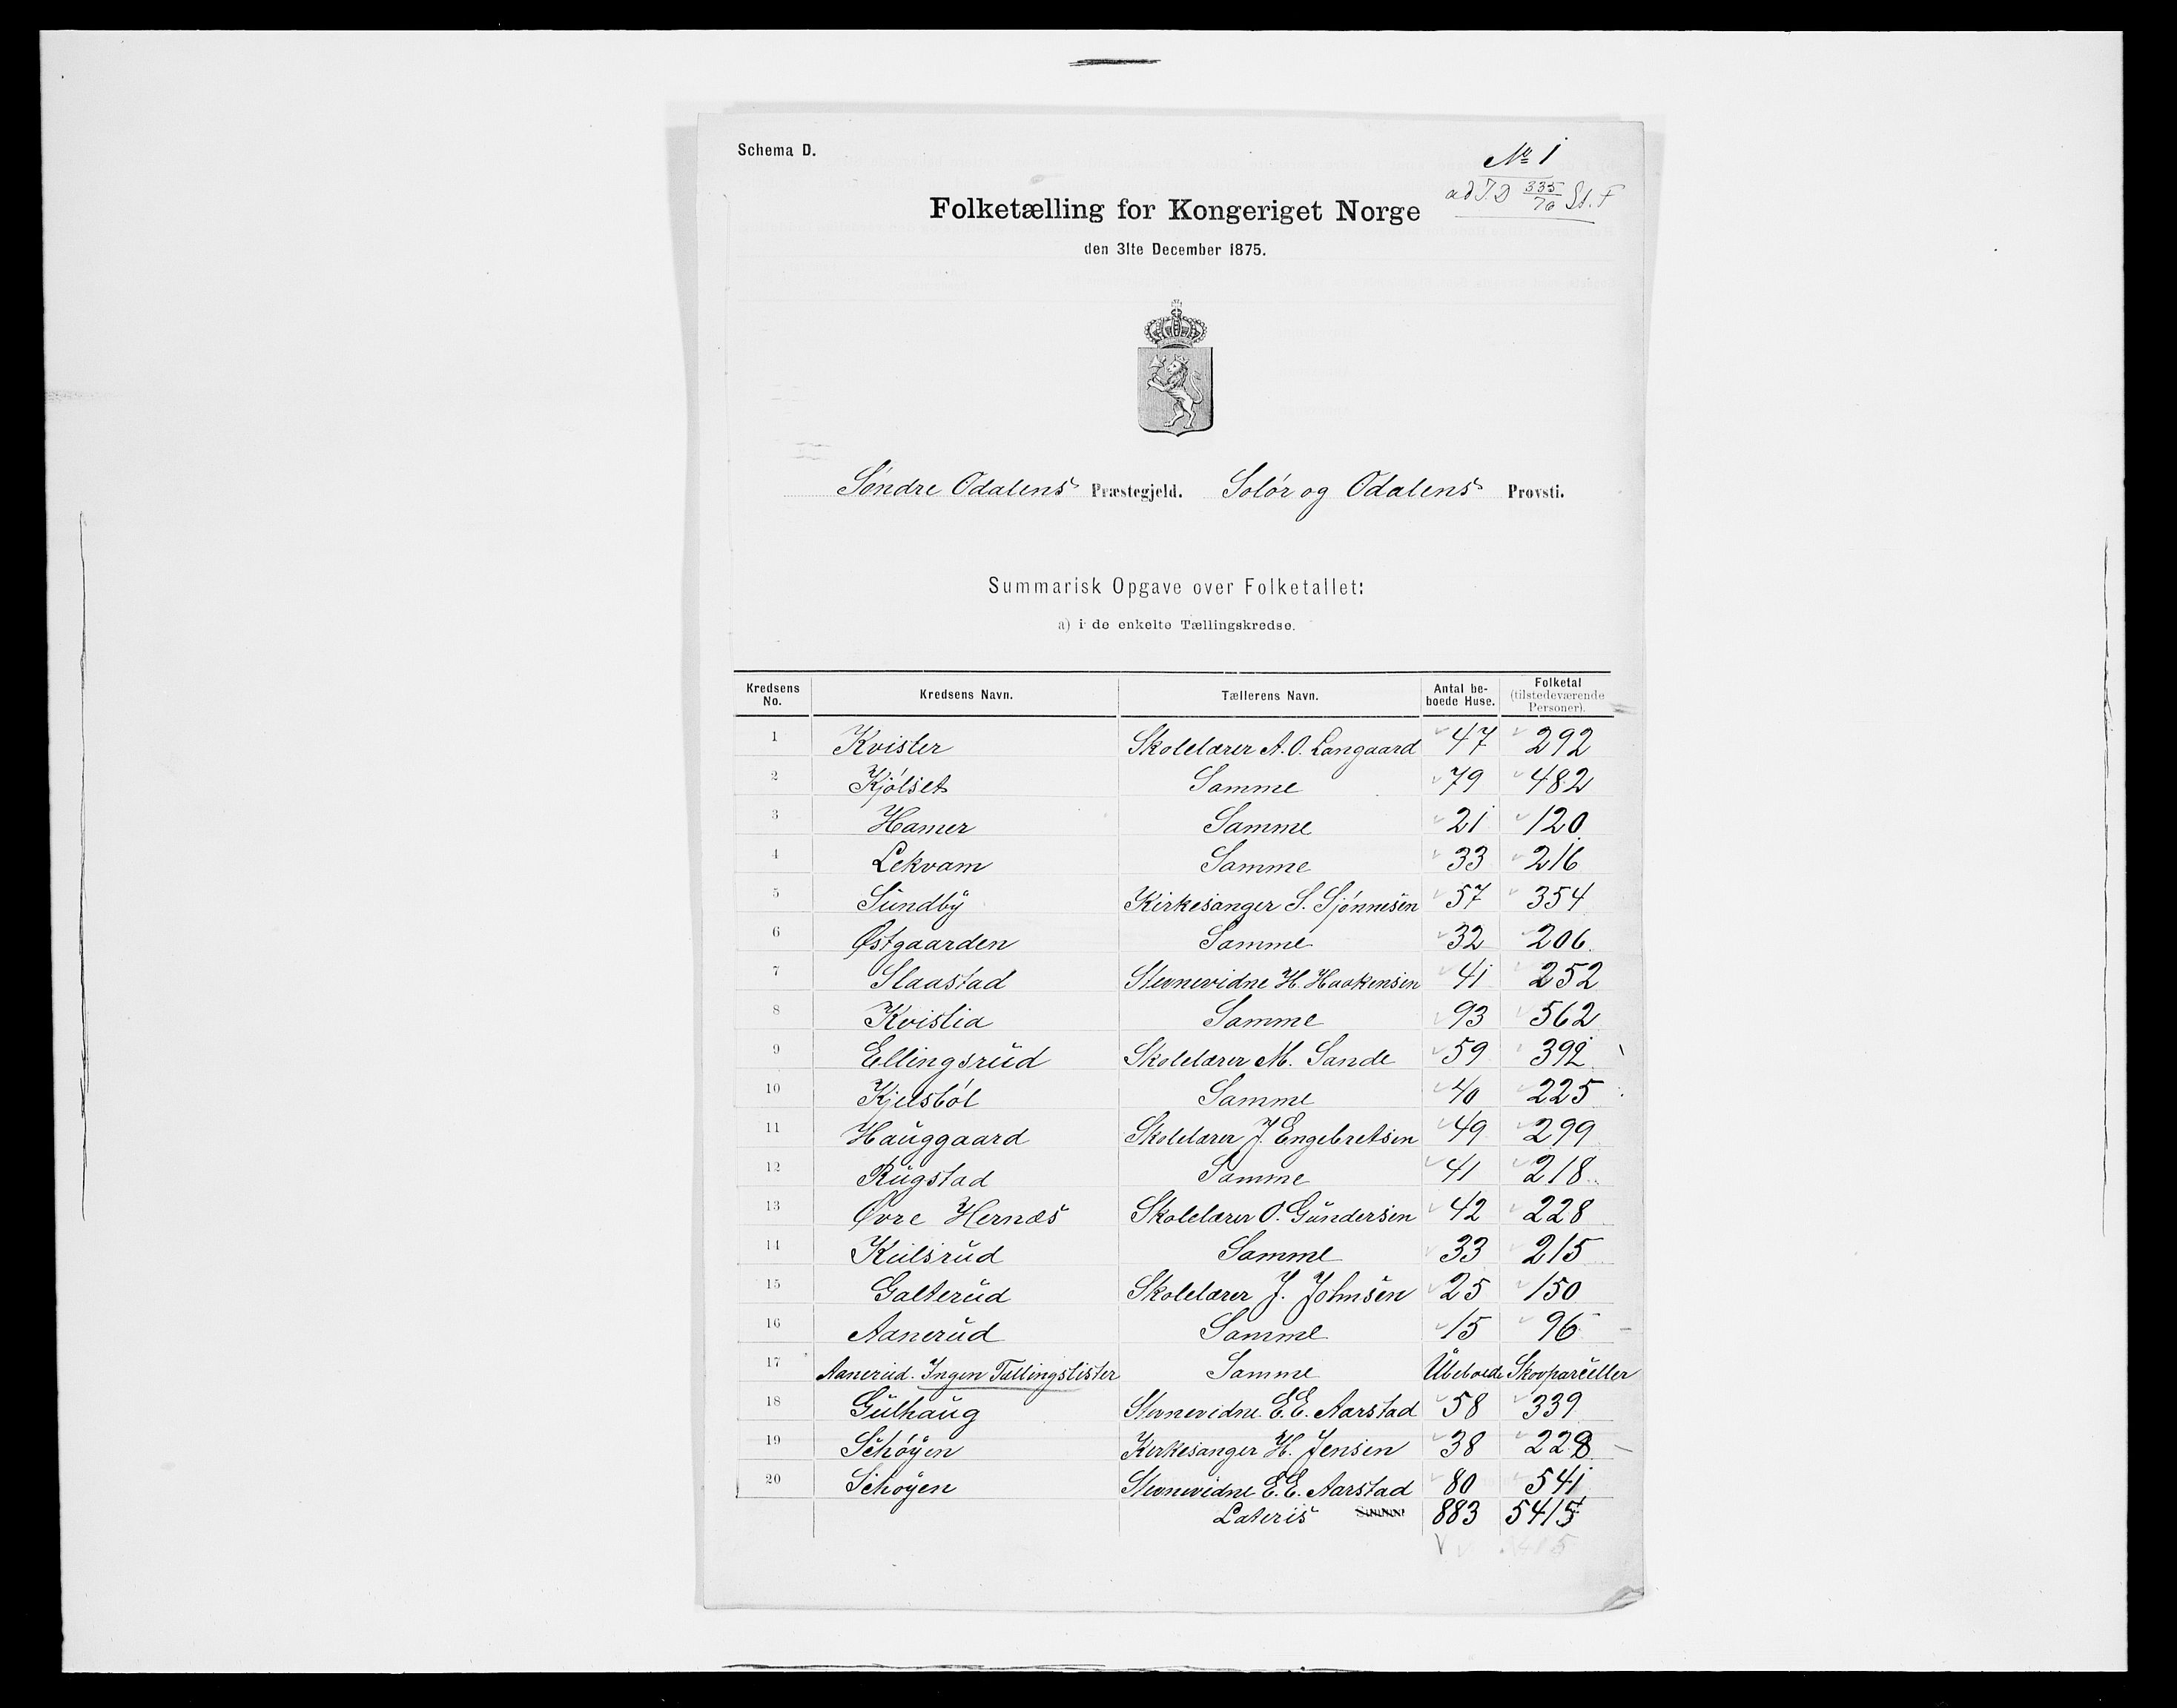 Schema D.
No 1
ad J.D 335/76 St. F
Folketælling for Kongeriget Norge
den 31te December 1875.
Søndre Odalens Præstegjeld. Solør og Odalens Provsti.
Summarisk Opgave over Folketallet:
a) i de enkelte Tællingskredse.
Kredsens No. Kredsens Navn. Tællerens Navn. Antal beboede Huse. Folketal (tilstedeværende Personer).
1 Kvisler Skolelærer A. O. Langaard 47 292
2 Kjølset Samme 79 482
3 Hamer Samme 21 120
4 Lekvam Samme 33 216
5 Sundby Kirkesanger S. Sjønnesen 57 354
6 Østgaarden Samme 32 206
7 Slaastad Stevnevidne H. Haakensen 41 252
8 Kvislia Samme 93 562
9 Ellingsrud Skolelærer M. Sande 59 392
10 Kjelsbøl Samme 40 225
11 Hauggaard Skolelærer J. Engebretsen 49 299
12 Rugstad Samme 41 218
13 Øvre Hernæs Skolelærer O. Gundersen 42 228
14 Kulsrud Samme 33 215
15 Galterud Skolelærer J. Johnsen 25 150
16 Aanerud Samme 15 96
17 Aanerud. Ingen Tællingslister Samme Ubeboede Skovparceller
18 Gulhaug Stevnevidne E. E. Aarstad 58 339
19 Schøyen Kirkesanger H. Jensen 38 228
20 Schøyen Stevnevidne E. E. Aarstad 80 541
Lateris 883 5415